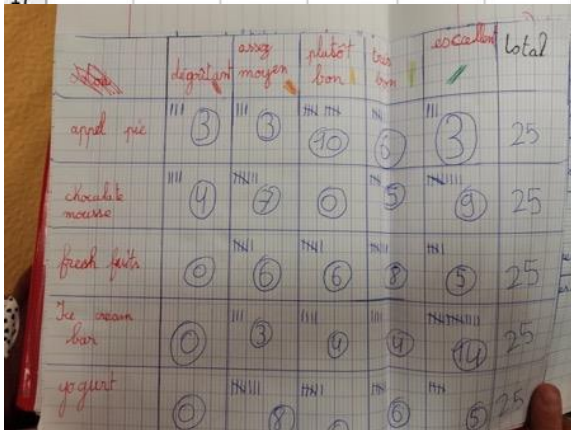 dégoûtant assez moyen plutôt bon très bon excellent total
appel pie 3 3 10 6 3 25
chocolate mousse 4 7 0 5 9 25
fresh fruits 0 6 6 8 5 25
Ice cream bar 0 3 4 4 14 25
yogurt 0 8 6 5 25